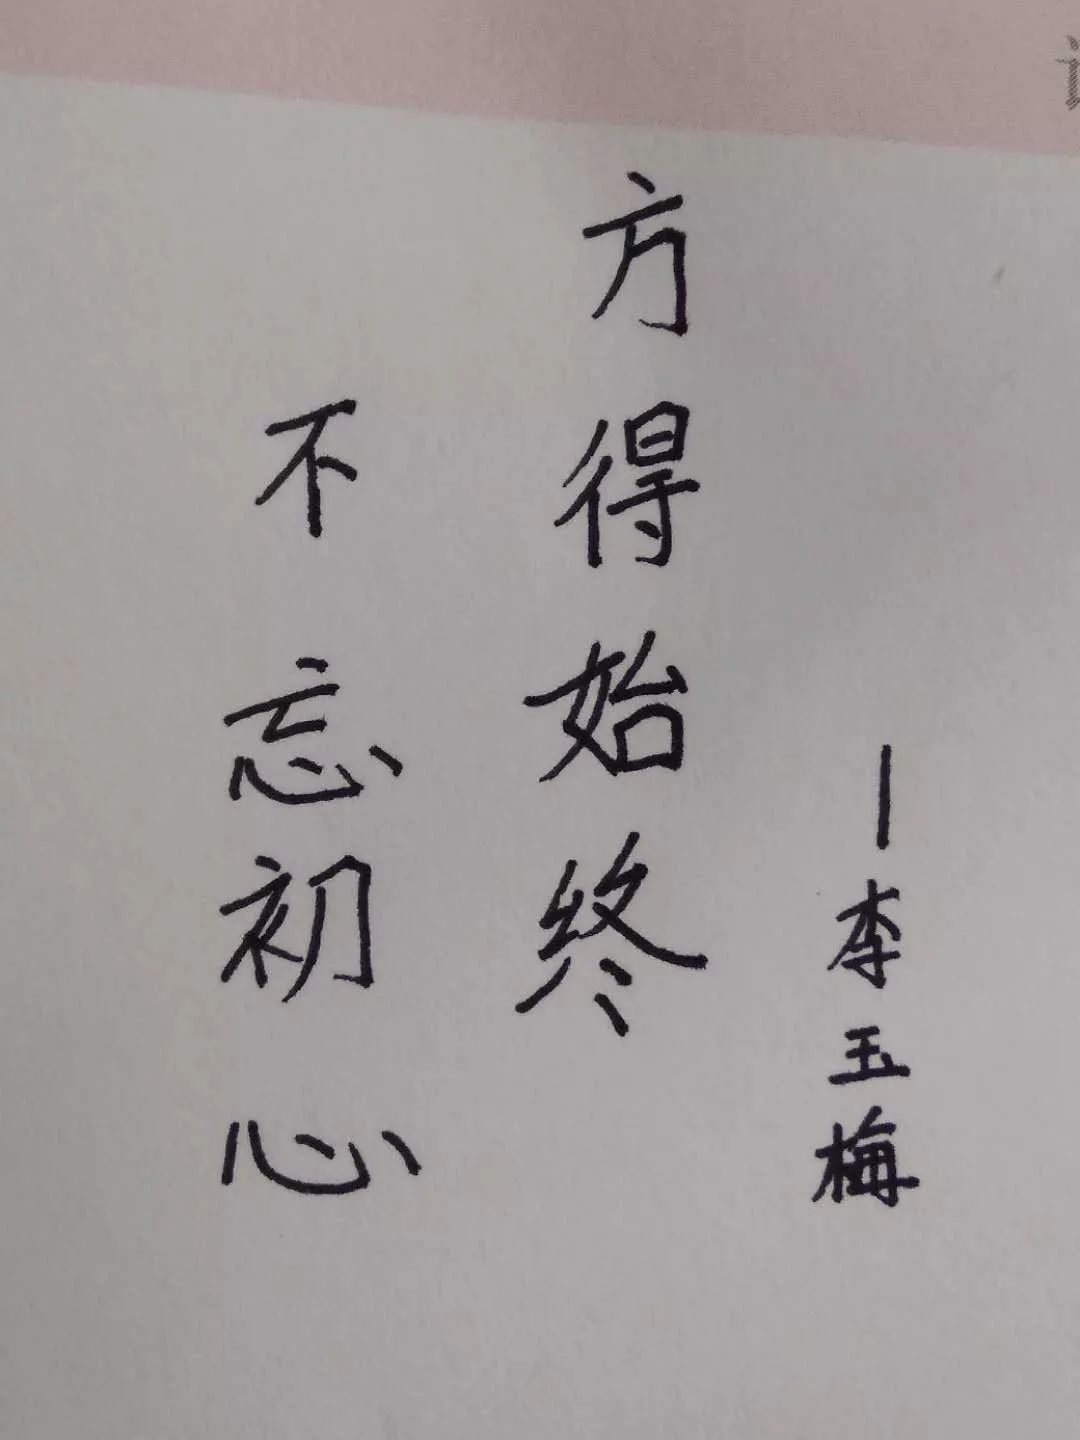 不忘初心
方得始终
—李玉梅